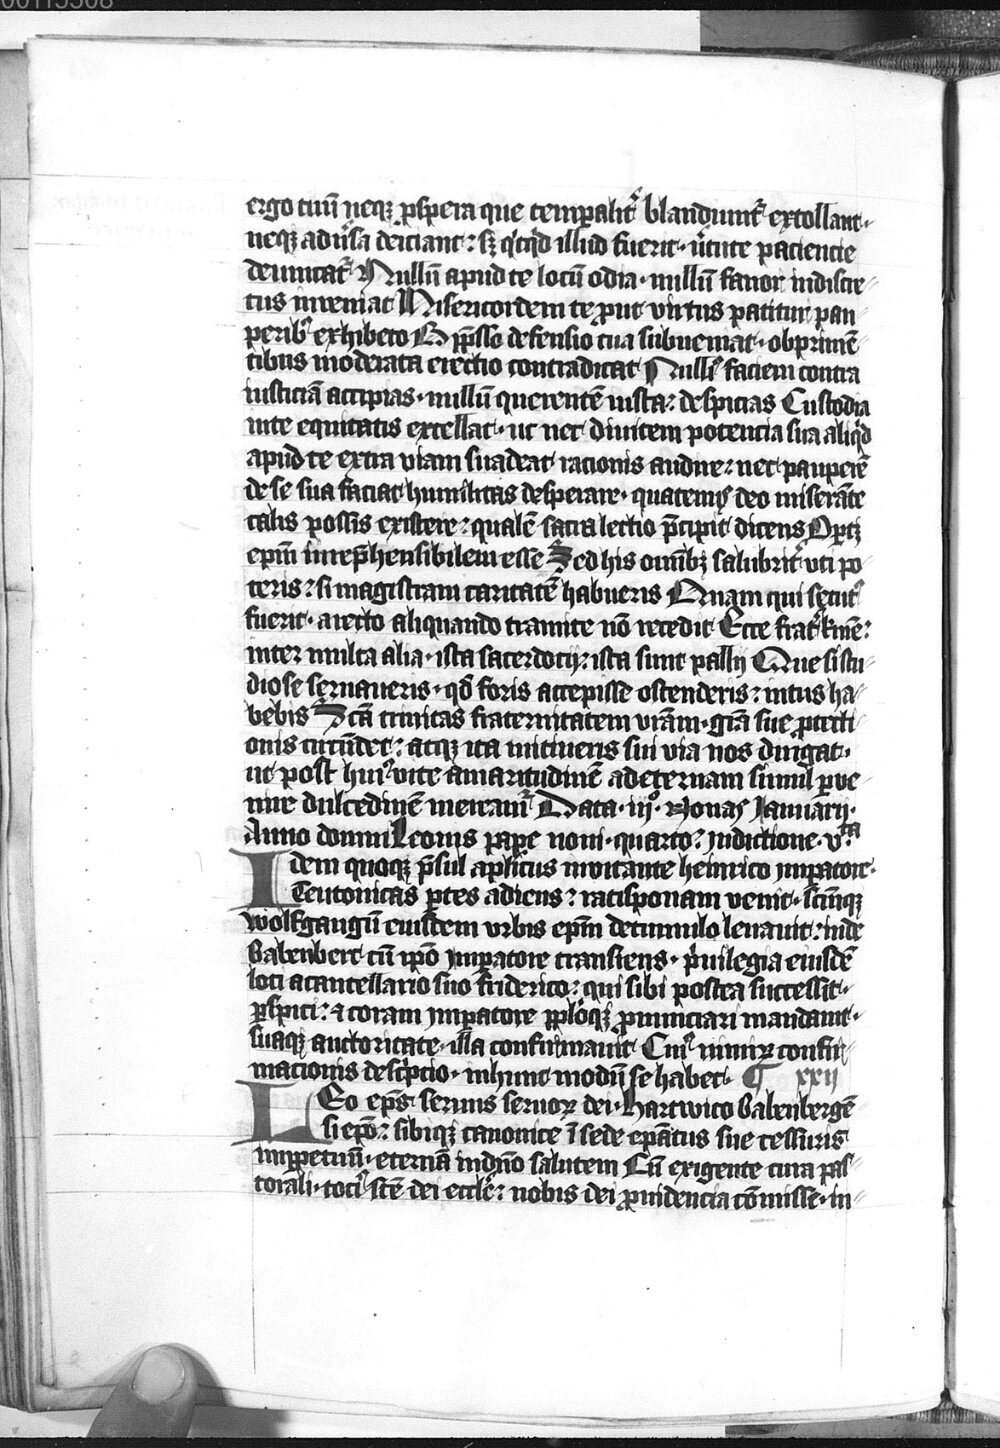 00115508
ergo tuū neqꝫ ꝓspera que tempalit̉ blandiunt᷑ extollant·
neqꝫ adūsa deiciant: sꝫ qͥcqͥd illud fuerit· v̉tute paciencie
deuincat᷑ Nullū apud te locū odia· nullū fauor indiscre⸗
tus inveniat Misericordem te put virtus patitur pau
perib᷒ exhibeto Oꝑpsso defensio tua subueniat· obprimē
tibus moderata erectio contradicat Nulli᷒ faciem contra
iusticiā accipias· nullū querentē iusta: despicias Custodia
inte equitatis excellat· ut nec diuitem potencia sua aliqͥd
apud te extra viam suadeat racionis audire: nec pauperē
de se sua faciat humilitas desperare· quatenus deo miserāte
talis possis existere: qualē sacra lectio p̄cipit dicens Oꝑtꝫ
epm̄ irrep̄hensibilem esse Sed his om̄ibꝫ salubrit̉ vti po⸗
teris: si magistram caritatē habueris Quam qui secut᷒
fuerit· a recto aliquando tramite nō recedit Ecce frat̉ kme:
inter multa alia· ista sacerdotij: ista sunt pallij Que si stu⸗
diose seruaueris· qd̄ foris accepisse ostenderis: intus ha⸗
bebis Scā trinitas fraternitatem vr̄am· gr̄a sue ꝓtecti
onis circūdet: atqꝫ ita in timeris sui via nos dirigat·
ut post hui᷒ vite amaritudinē ad eternam simul ꝑue⸗
nire dulcedinē mereamr̄ Data· iijͦ· Nonas Januarij·
Anno domni Leonis pape noni· quarto: Indictione· vͭᵃ
Idem quoqꝫ p̄sul aplicus invitante heinrico impatore·
Teutonicas ꝑtes adiens: ratisponam venit· scūmqꝫ
wolfgangū eiusdem vrbis epm̄ de tumulo leuauit: inde
Babenberc cū ip̄o impatore transiens· pͥuilegia eiusdē
loci a cancellario suo friderico: qui sibi postea successit·
ꝑspici: ⁊ coram imperatore pploqꝫ ꝓnunciari mandauit·
suaqꝫ auctoritate· illa confirmauit Cui᷒ nimiꝝ confir⸗
macionis descͥpcio· in hunc modū se habet· ¶ xxij
LEo ep̄s seruus seruoꝝ dei· Hartwico Babenbergē
si ep̄o: sibiqꝫ canonice ī sede ep̄atus sue cessuris
inꝑpetuū· eternā in dn̄o salutem Cū exigente cura pas⸗
torali· toci᷒ scē dei eccl̄e: nobis dei ꝓuidencia cōmisse· in⸗